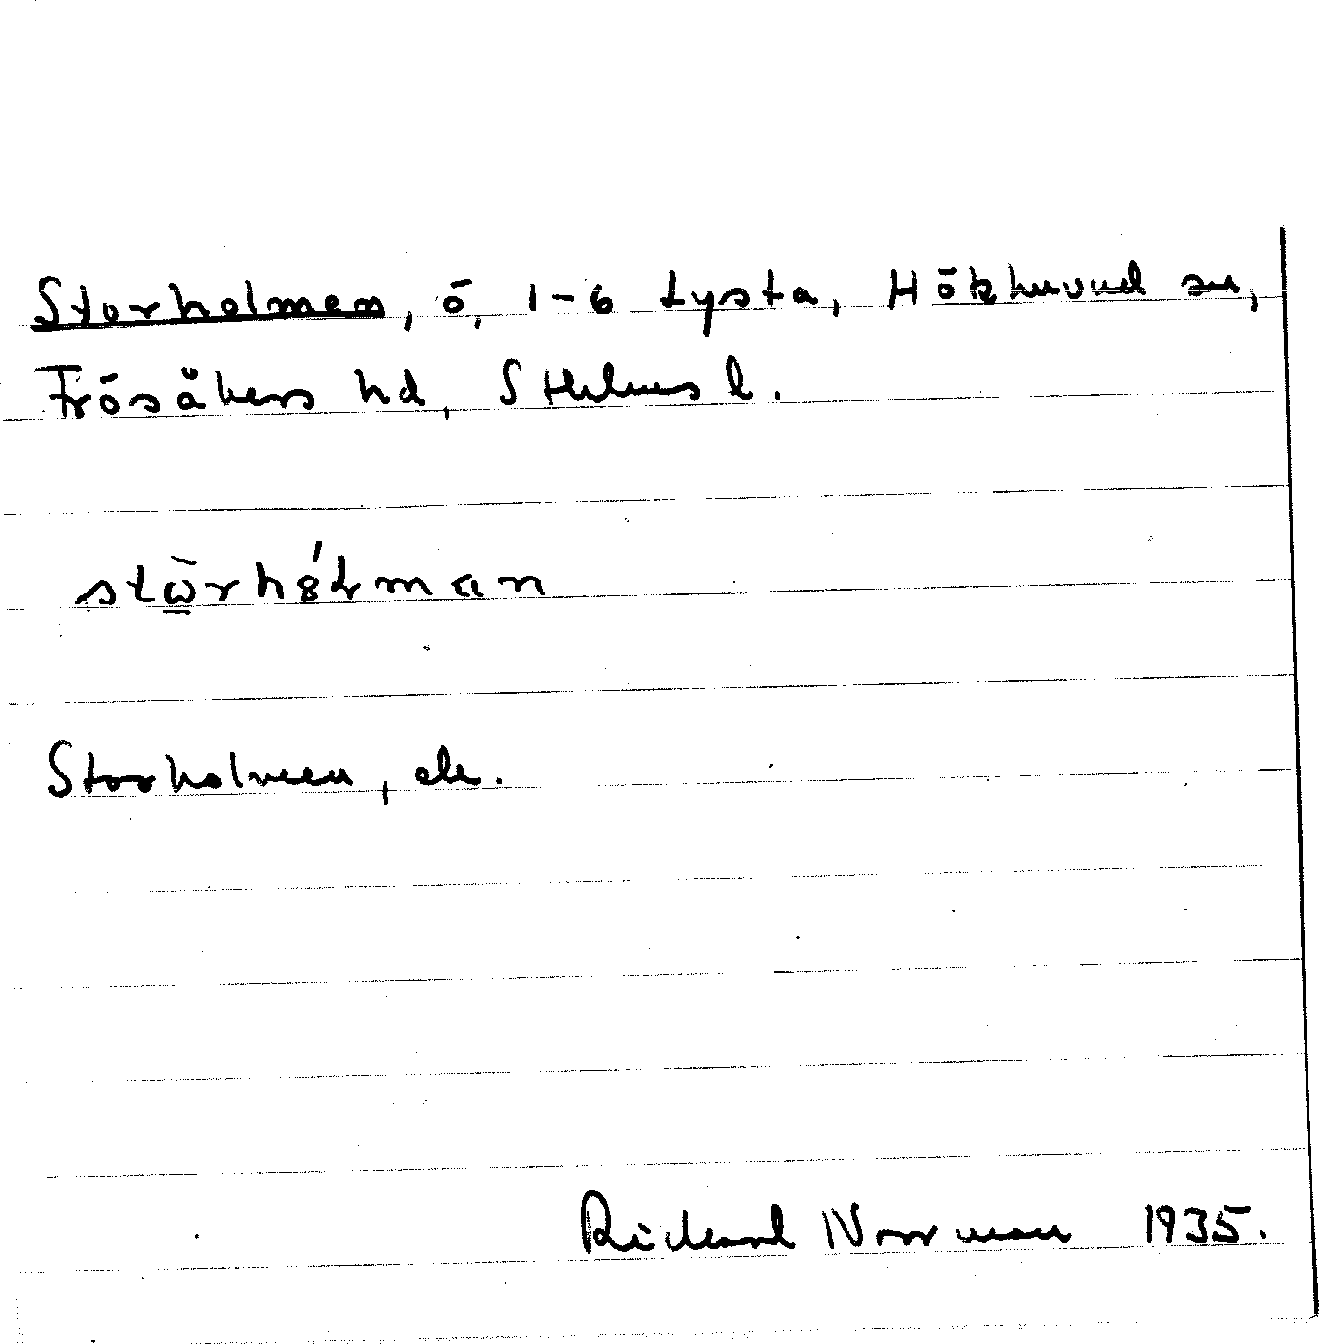 Storholmen, ö, 1-6 Lysta, Hökhuvud sn,
Frösåkers hd, Sthlms l.
Storholmen, ök.
Rickard Norrman 1935.